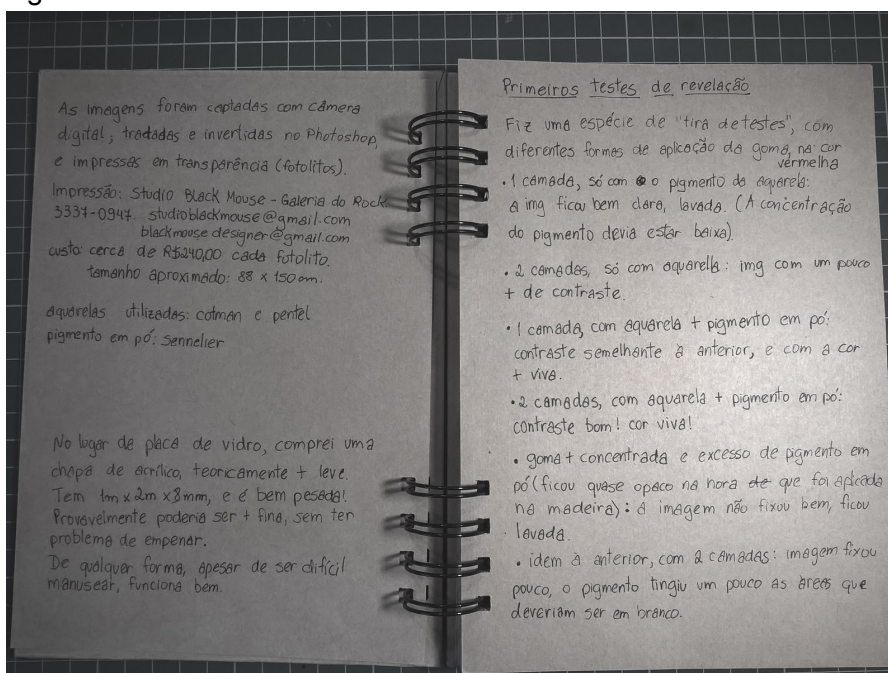 As imagens foram captadas com câmera
digital, tratadas e invertidas no Photoshop,
e impressas em transparência (fotolitos).
Impressão: Studio Black Mouse - Galeria do Rock.
3337-0947. studioblackmouse@gmail.com
blackmousedesigner@gmail.com
custo: cerca de R$240,00 cada fotolito.
tamanho aproximado: 88 x 150cm.
aquarelas utilizadas: cotman e pentel
pigmento em pó: sennelier
No lugar de placa de vidro, comprei uma
chapa de acrílico, teoricamente + leve.
Tem 1m x 2m x 8mm, e é bem pesada!
Provavelmente poderia ser + fina, sem ter
problema de empenar.
De qualquer forma, apesar de ser difícil
manusear, funciona bem.
Primeiros testes de revelação
Fiz uma espécie de "tira de testes", com
diferentes formas de aplicação da goma, na cor
vermelha
• 1 camada, só com o pigmento da aquarela:
a img ficou bem clara, lavada. (A concentração
do pigmento devia estar baixa).
• 2 camadas, só com aquarella: img com um pouco
+ de contraste.
• 1 camada, com aquarela + pigmento em pó:
contraste semelhante à anterior, e com a cor
+ viva.
• 2 camadas, com aquarela + pigmento em pó:
contraste bom! cor viva!
• goma + concentrada e excesso de pigmento em
pó (ficou quase opaco na hora de que foi aplicada
na madeira): a imagem não fixou bem, ficou
lavada.
• idem à anterior, com 2 camadas: imagem fixou
pouco, o pigmento tingiu um pouco as áreas que
deveriam ser em branco.